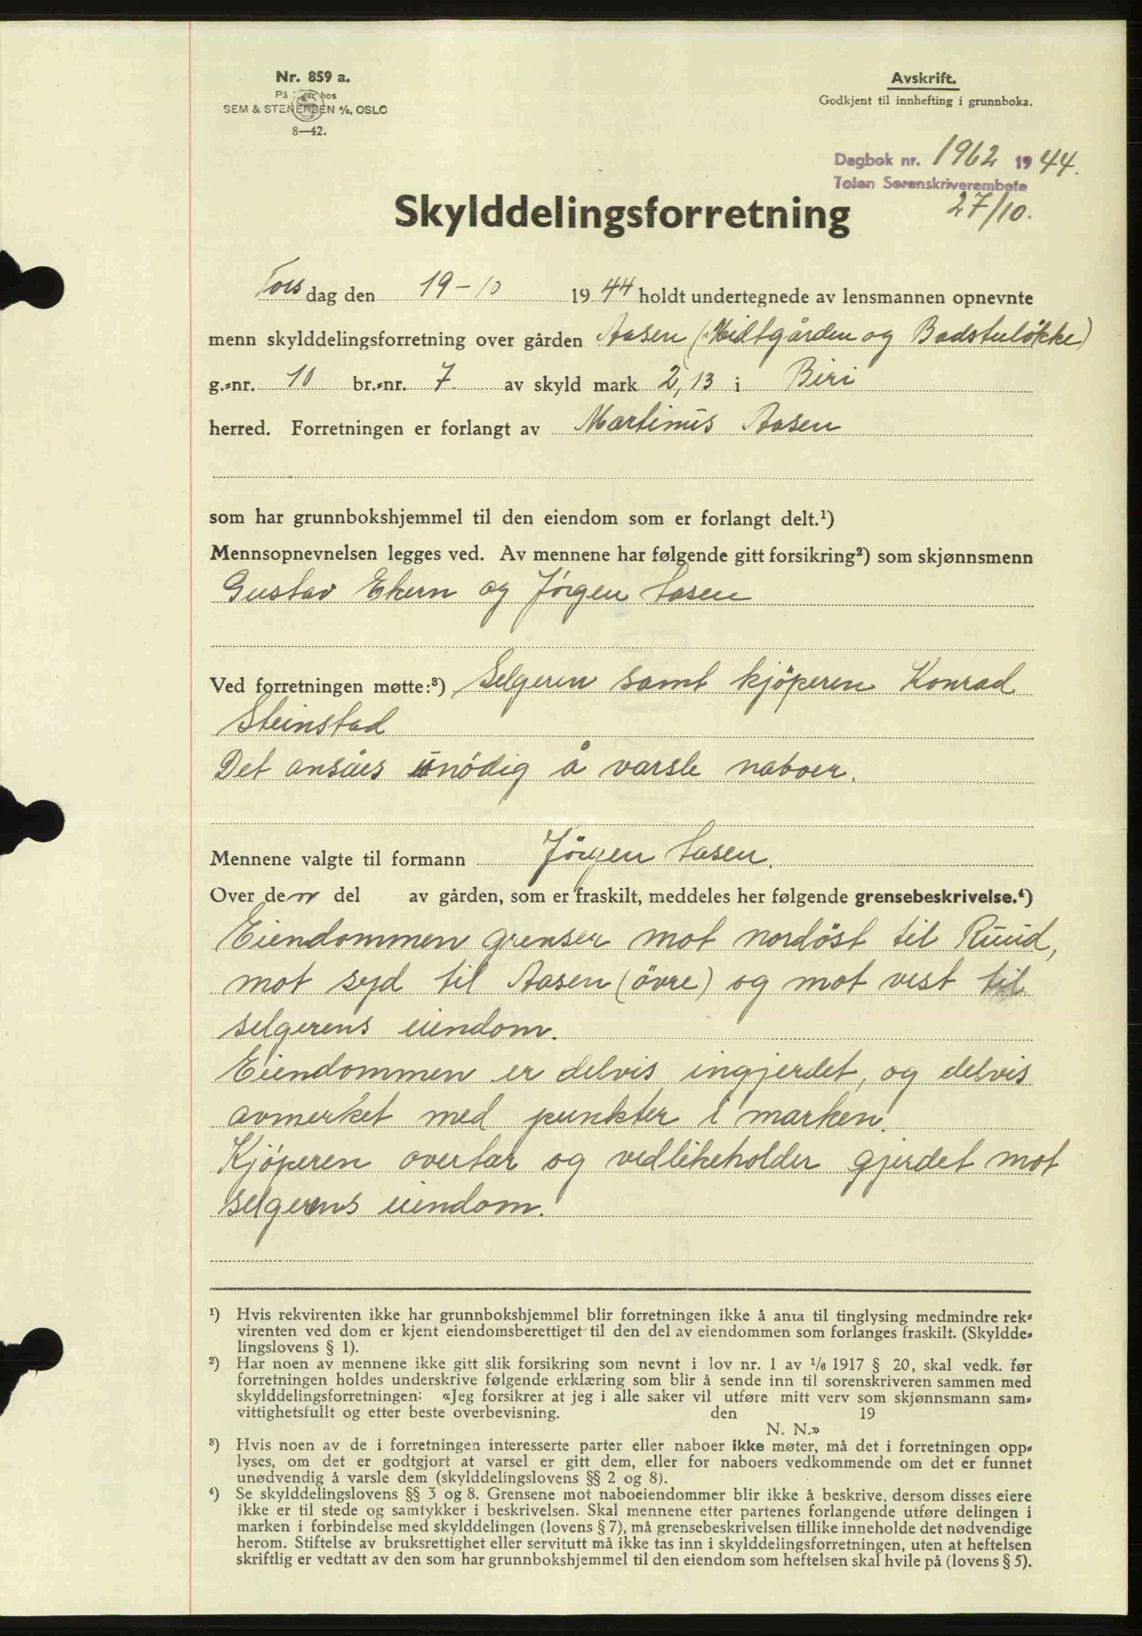 Nr. 859 a.
På hos
SEM & STENERSEN A/S, OSLO
8—42.
Avskrift.
Godkjent til innhefting i grunnboka.
Dagbok nr. 1962 1944.
Toten Sorenskriverembete
27/10.
Skylddelingsforretning
Torsdag den 19-10 1944 holdt undertegnede av lensmannen opnevnte
menn skylddelingsforretning over gården Aasen (Midtgården og Badstuløkke)
g.-nr. 10 br.-nr. 7 av skyld mark 2,13 i Biri
herred. Forretningen er forlangt av Martinus Aasen
som har grunnbokshjemmel til den eiendom som er forlangt delt.¹)
Mennsopnevnelsen legges ved. Av mennene har følgende gitt forsikring²) som skjønnsmenn
Gustav Ekern og Jörgen Aasen
Ved forretningen møtte:³) Selgeren samt kjöperen Konrad
Steinstad
Det ansåes unödig å varsle naboer.
Mennene valgte til formann Jörgen Aasen.
Over den del av gården, som er fraskilt, meddeles her følgende grensebeskrivelse.⁴)
Eiendommen grenser mot nordöst til Ruud,
mot syd til Aasen (övre) og mot vest til
selgerens eiendom.
Eiendommen er delvis ingjerdet, og delvis
avmerket med punkter i marken.
Kjöperen overtar og vedlikeholder gjerdet mot
selgerens eiendom.
¹) Hvis rekvirenten ikke har grunnbokshjemmel blir forretningen ikke å anta til tinglysing medmindre rek-
virenten ved dom er kjent eiendomsberettiget til den del av eiendommen som forlanges fraskilt. (Skyldde-
lingslovens § 1).
²) Har noen av mennene ikke gitt slik forsikring som nevnt i lov nr. 1 av 1/8 1917 § 20, skal vedk. før
forretningen holdes underskrive følgende erklæring som blir å sende inn til sorenskriveren sammen med
skylddelingsforretningen: «Jeg forsikrer at jeg i alle saker vil utføre mitt verv som skjønnsmann sam-
vittighetsfullt og etter beste overbevisning. den 19
N. N.»
³) Hvis noen av de i forretningen interesserte parter eller naboer ikke møter, må det i forretningen opp-
lyses, om det er godtgjort at varsel er gitt dem, eller for naboers vedkommende om det er funnet
unødvendig å varsle dem (skylddelingslovens §§ 2 og 8).
⁴) Se skylddelingslovens §§ 3 og 8. Grensene mot naboeiendommer blir ikke å beskrive, dersom disses eiere
ikke er til stede og samtykker i beskrivelsen. Skal mennene etter partenes forlangende utføre delingen i
marken i forbindelse med skylddelingen (lovens § 7), må grensebeskrivelsen tillike inneholde det nødvendige
herom. Stiftelse av bruksrettighet eller servitutt må ikke tas inn i skylddelingsforretningen, uten at heftelsen
skriftlig er vedtatt av den som har grunnbokshjemmel til den eiendom som heftelsen skal hvile på (lovens § 5).